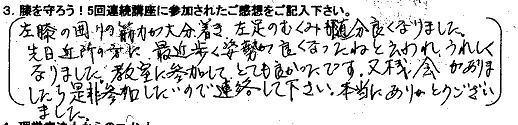 3. 膝を守ろう！5回連続講座に参加されたご感想をご記入下さい。
左膝の回りの筋力が大分着き 左足のむくみ随分良くなりました。
先日近所の方に 最近歩く姿勢が良くなったねと云われ、うれしく
なりました。教室に参加して とても良かったです。又機会がありま
したら是非参加したいので連絡して下さい。本当にありがとうござい
ました。